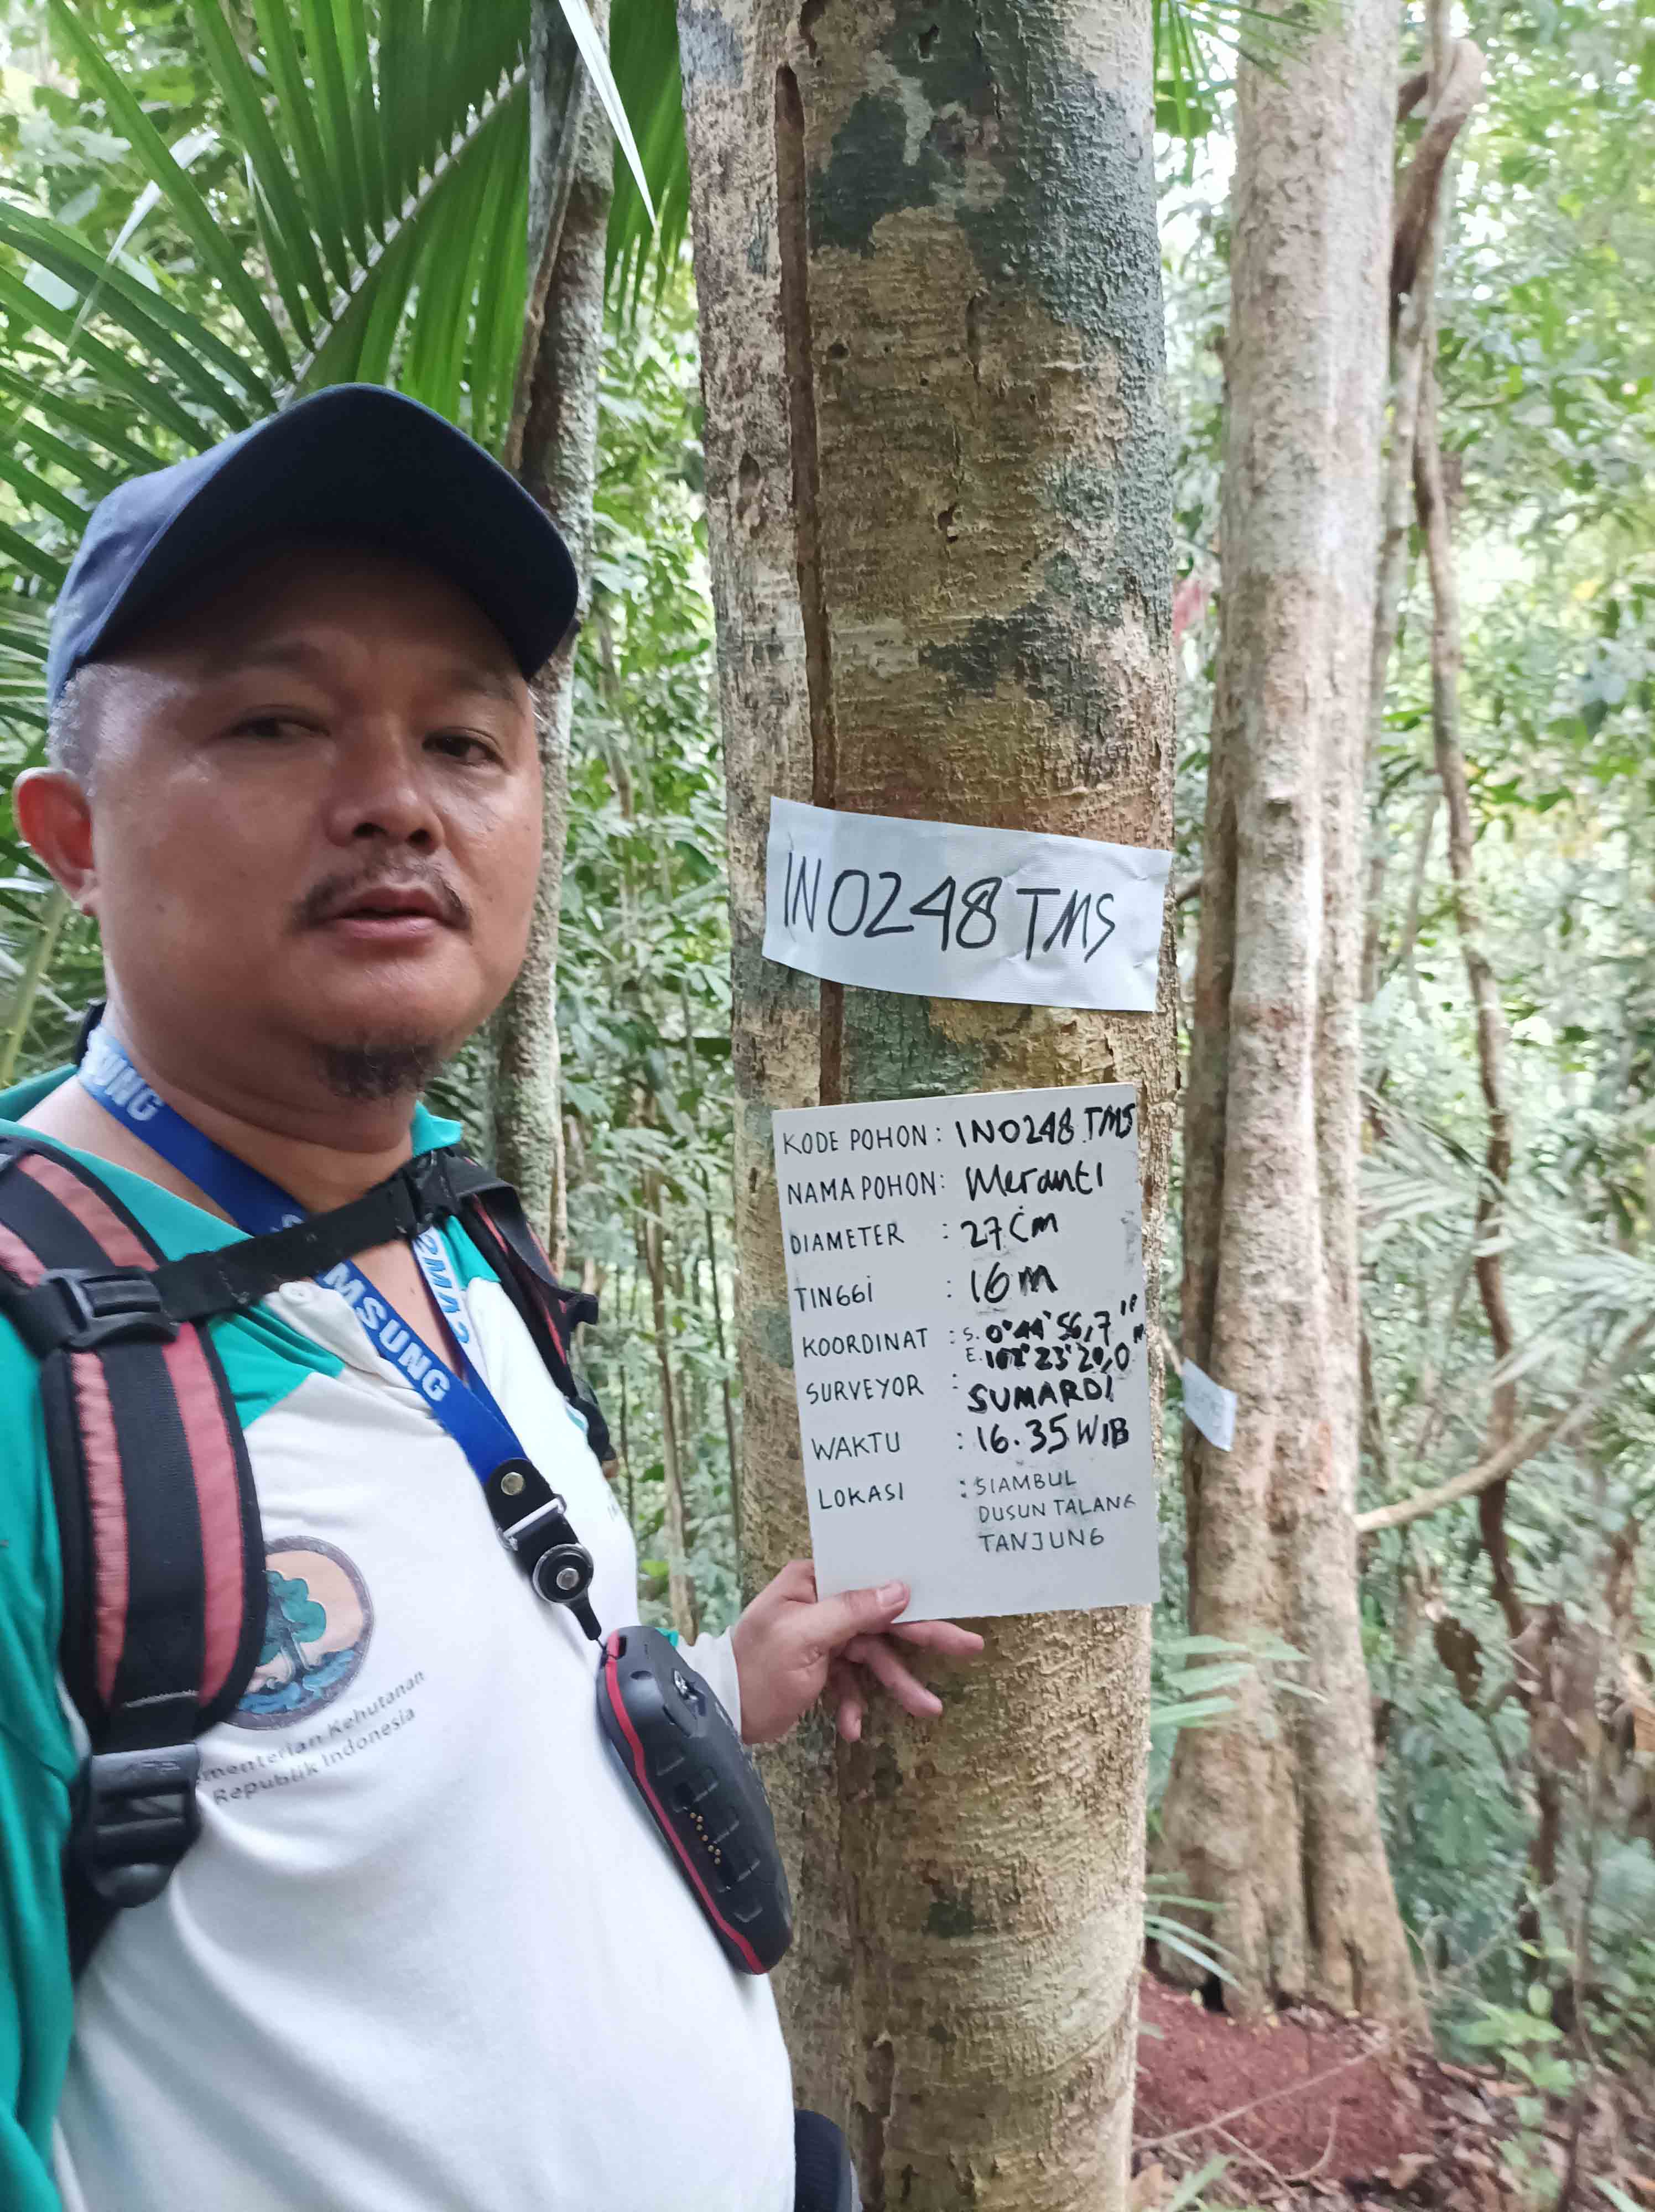 1N0248 TMS
KODE POHON : 1N0248 TMS
NAMA POHON : Meranti
DIAMETER : 27 Cm
TINGGI : 16 m
KOORDINAT : S. 0°44'56,7"
E. 102°23'20,0"
SURVEYOR : SUMARDI
WAKTU : 16.35 WIB
LOKASI : SIAMBUL
DUSUN TALANG
TANJUNG
SUNG
MSUNG
Kehutanan
Republik Indonesia